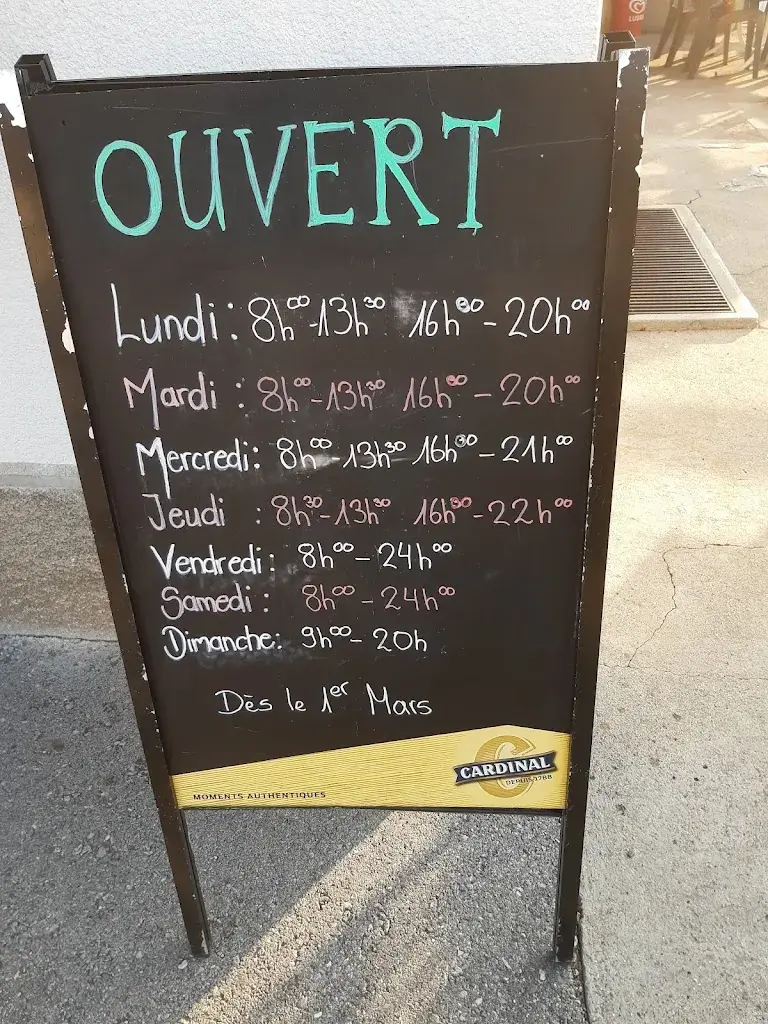 OUVERT
Lundi : 8h00-13h30 16h30-20h00
Mardi : 8h00-13h30 16h30-20h00
Mercredi: 8h00-13h30 16h30-21h00
Jeudi : 8h30-13h30 16h30-22h00
Vendredi: 8h00-24h00
Samedi: 8h00-24h00
Dimanche: 9h00-20h
Dès le 1er Mars
CARDINAL
DEPUIS 1788
MOMENTS AUTHENTIQUES